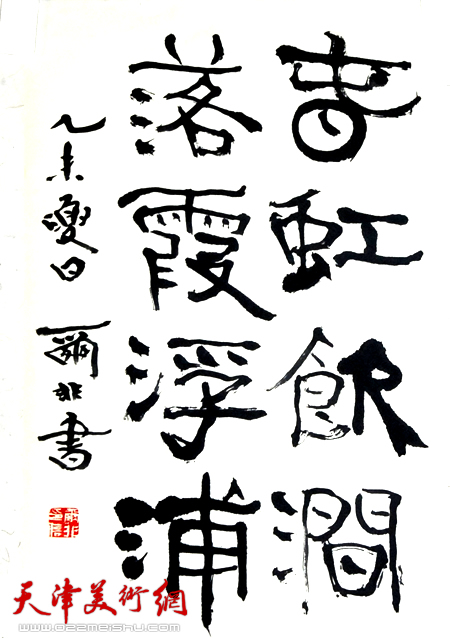 春虹飲澗
落霞浮浦
乙未夏日 爾非書
天津美術網
www.022meishu.com